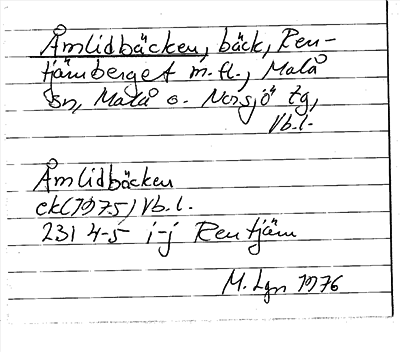 Åmlidbäcken, bäck, Ren-
tjärnberget m.fl., Malå
sn, Malå o. Norsjö tg,
Vb.l.
Åmlidbäcken
ek(1975) Vb.l.
231 4-5 i-j Rentjärn
M. Lgn 1976